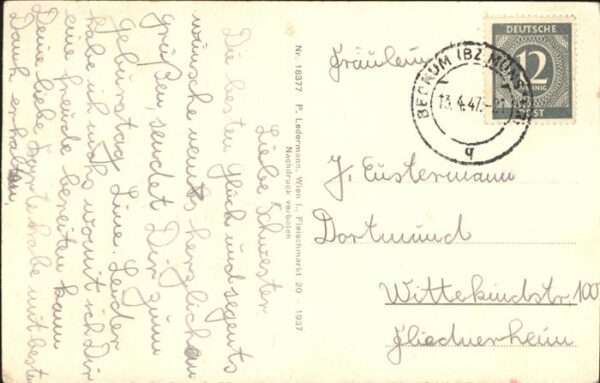 Liebe Schwester
Die besten Glück und segens
wünsche nebst herzlichen
grüßen, sendet Dir zum
geburstag Line. Leider
habe ich nichts womit ich Dir
eine freude bereiten kann
Deine liebe Karte habe mit besten
Dank erhalten.
Nr. 18377 P. Ledermann, Wien I., Fleischmarkt 20 1937
Nachdruck verboten
DEUTSCHE
12
PFENNIG
POST
BECKUM (BZ. MÜNSTER)
13.4.47
q
Fräulein
J. Eustermann
Dortmund
Wittekindstr. 100
Fliednerheim